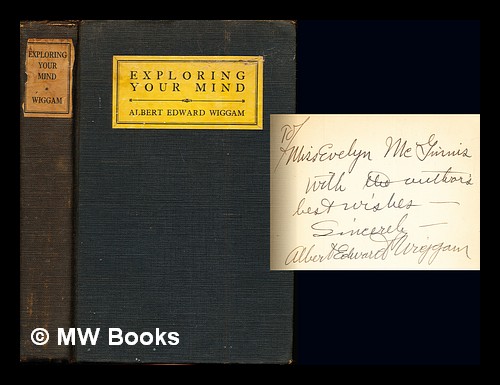 EXPLORING
YOUR
MIND
WIGGAM
EXPLORING
YOUR MIND
ALBERT EDWARD WIGGAM
To/
Miss Evelyn McGinnis
with the author's
best wishes —
Sincerely —
Albert Edward Wiggam
© MW Books